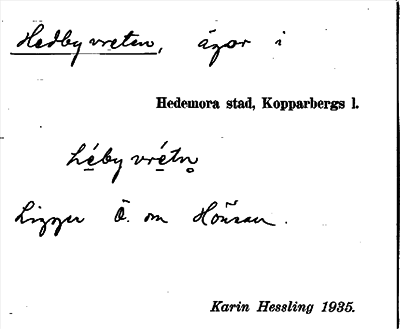 Hedbyvreten, ägor i
Hedemora stad, Kopparbergs l.
Lé̱by vré̱tn̥
Ligger Ö. om Hönsan.
Karin Hessling 1935.